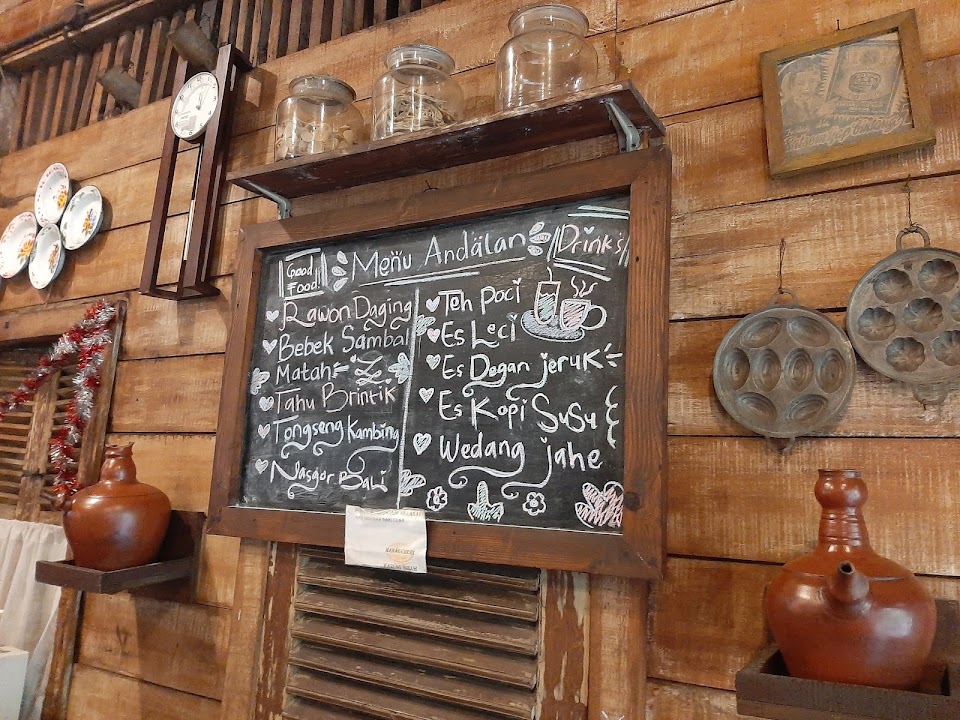 Good
Food!
Menu Andalan
Drink's
Rawon Daging
Bebek Sambal
Matah
Tahu Brintik
Tongseng Kambing
Nasgor Bali
Teh Poci
Es Leci
Es Degan jeruk
Es Kopi SuSu
Wedang jahe